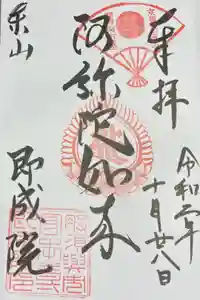 奉拝
令和二年
十月廿八日
阿弥陀如来
東山
即成院